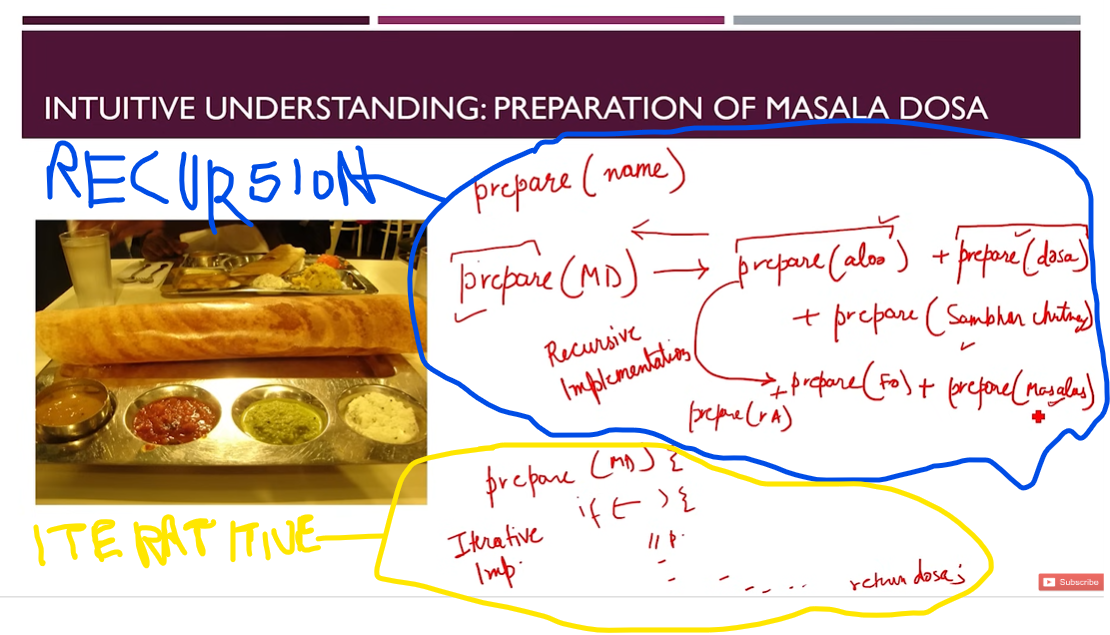 INTUITIVE UNDERSTANDING: PREPARATION OF MASALA DOSA
RECURSION
prepare(name)
prepare(MD) → prepare(aloo) + prepare(dosa)
+ prepare(Sambhar chutney)
Recursive
Implementation
+ prepare(FO) + prepare(Masalas)
prepare(rA)
ITERATITIVE
prepare (MD) {
if (— ) {
Iterative
Imp.
// p.
return dosa;
Subscribe